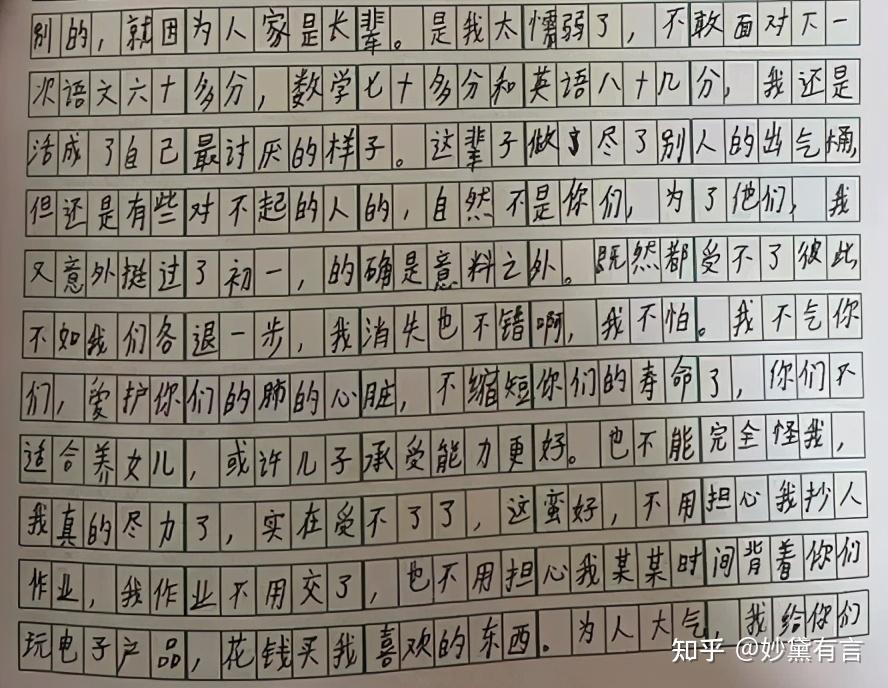 别的，就因为人家是长辈。是我太懦弱了，不敢面对下一
次语文六十多分，数学七十多分和英语八十几分，我还是
活成了自己最讨厌的样子。这辈子做尽了别人的出气桶，
但还是有些对不起的人的，自然不是你们，为了他们，我
又意外挺过了初一，的确是意料之外。既然都受不了彼此
不如我们各退一步，我消失也不错啊，我不怕。我不气你
们，爱护你们的肺的心脏，不缩短你们的寿命了，你们不
适合养女儿，或许儿子承受能力更好。也不能完全怪我，
我真的尽力了，实在受不了了，这蛮好，不用担心我抄人
作业，我作业不用交了，也不用担心我某某时间背着你们
玩电子产品，花钱买我喜欢的东西。为人大气，我给你们
知乎 @妙黛有言